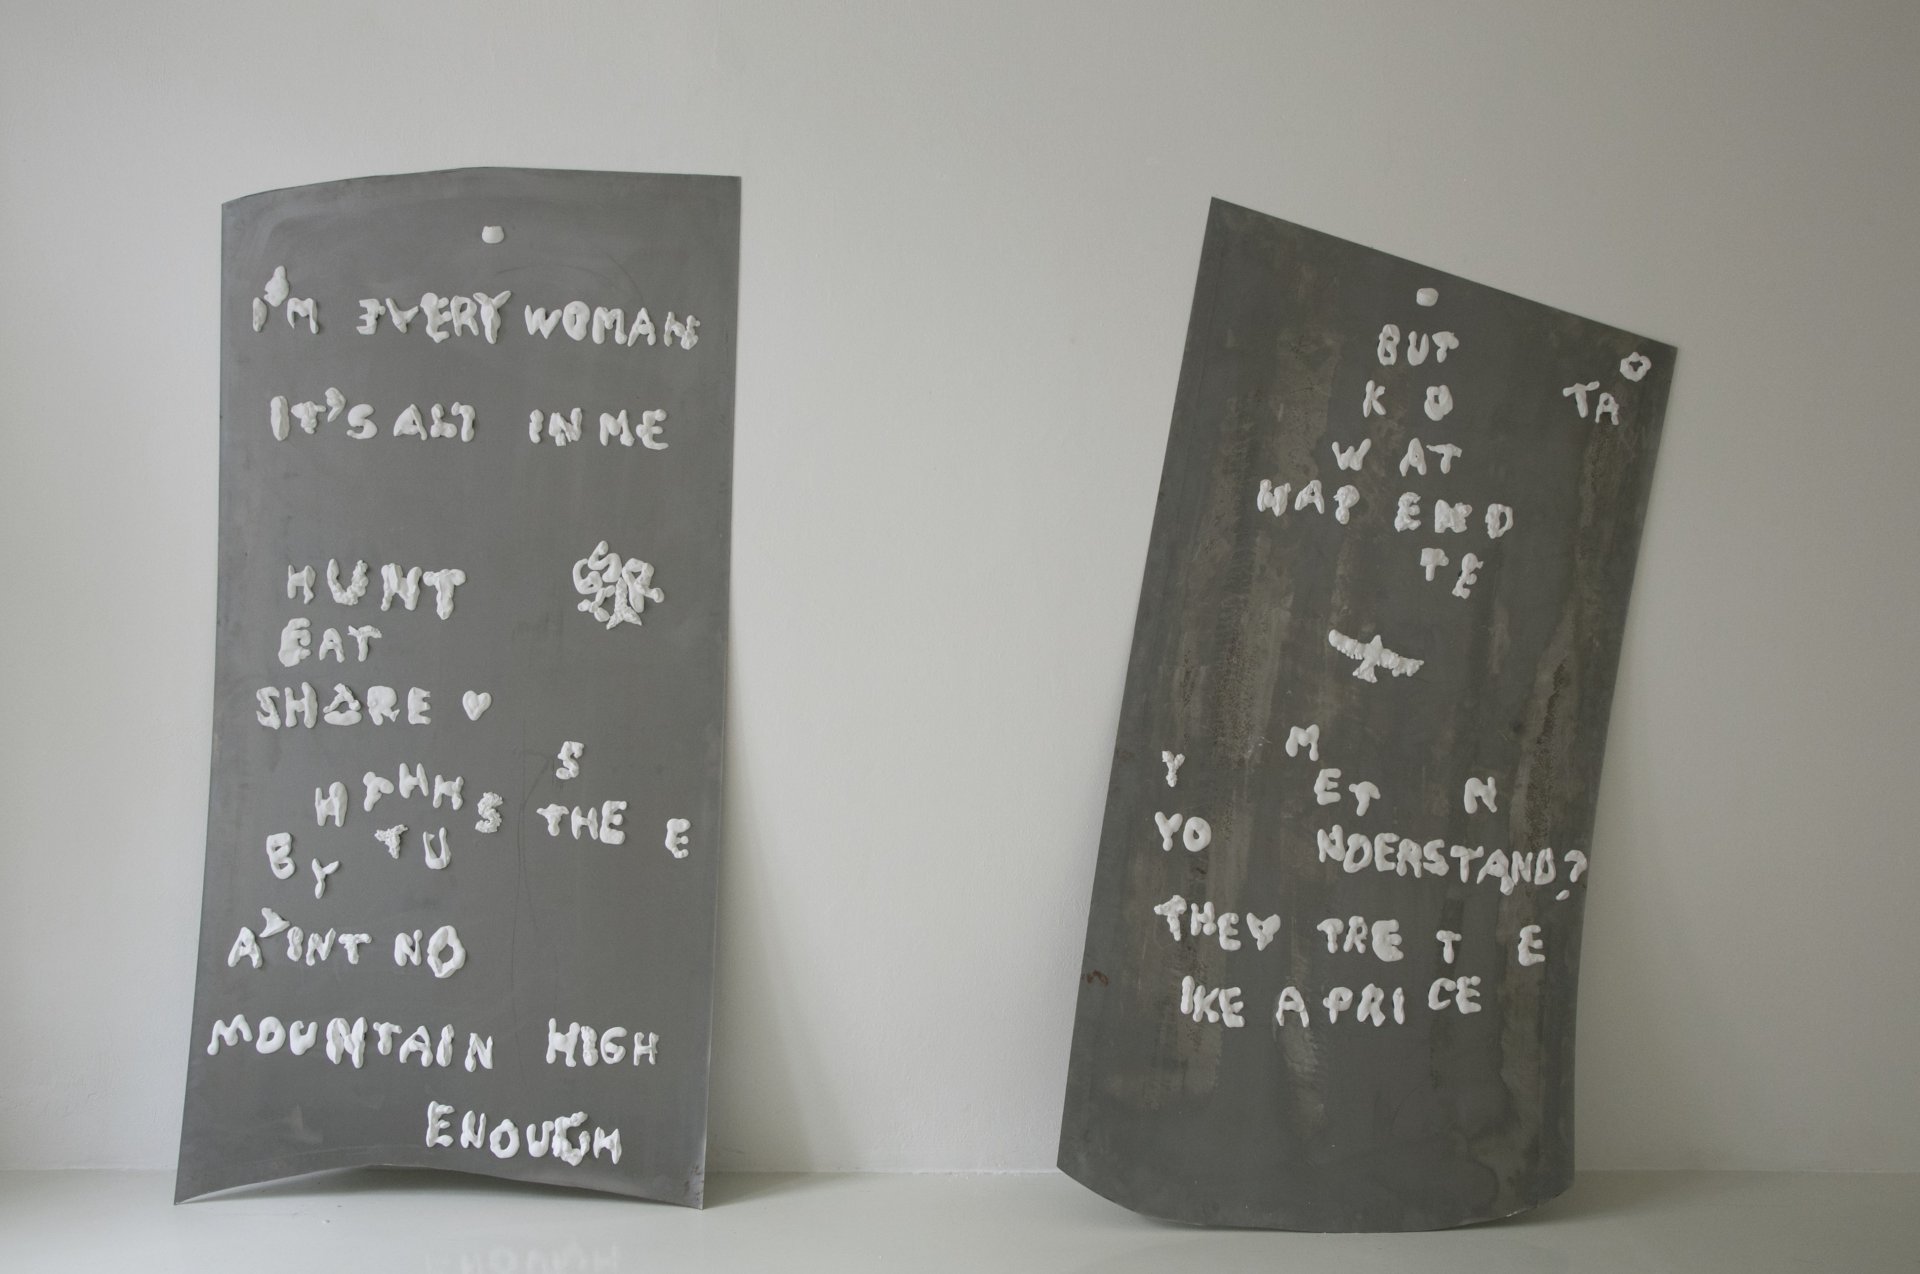 I'M EVERY WOMAN
IT'S ALL IN ME
HUNT
EAT
SHARE
S
THE E
BY TU
A'INT NO
MOUNTAIN HIGH
ENOUGH
BUT O
K O TA
W AT
HAP END
TE
M
Y ET N
YO NDERSTAND?
THEY TRE T E
IKE A PRI CE